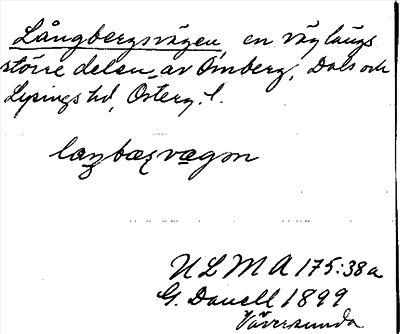 Långbergsvägen, en väg längs
större delen av Omberg, Dals och
Lysings hd, Österg. l.
ULMA 175:38a
G. Danell 1899
Väversunda